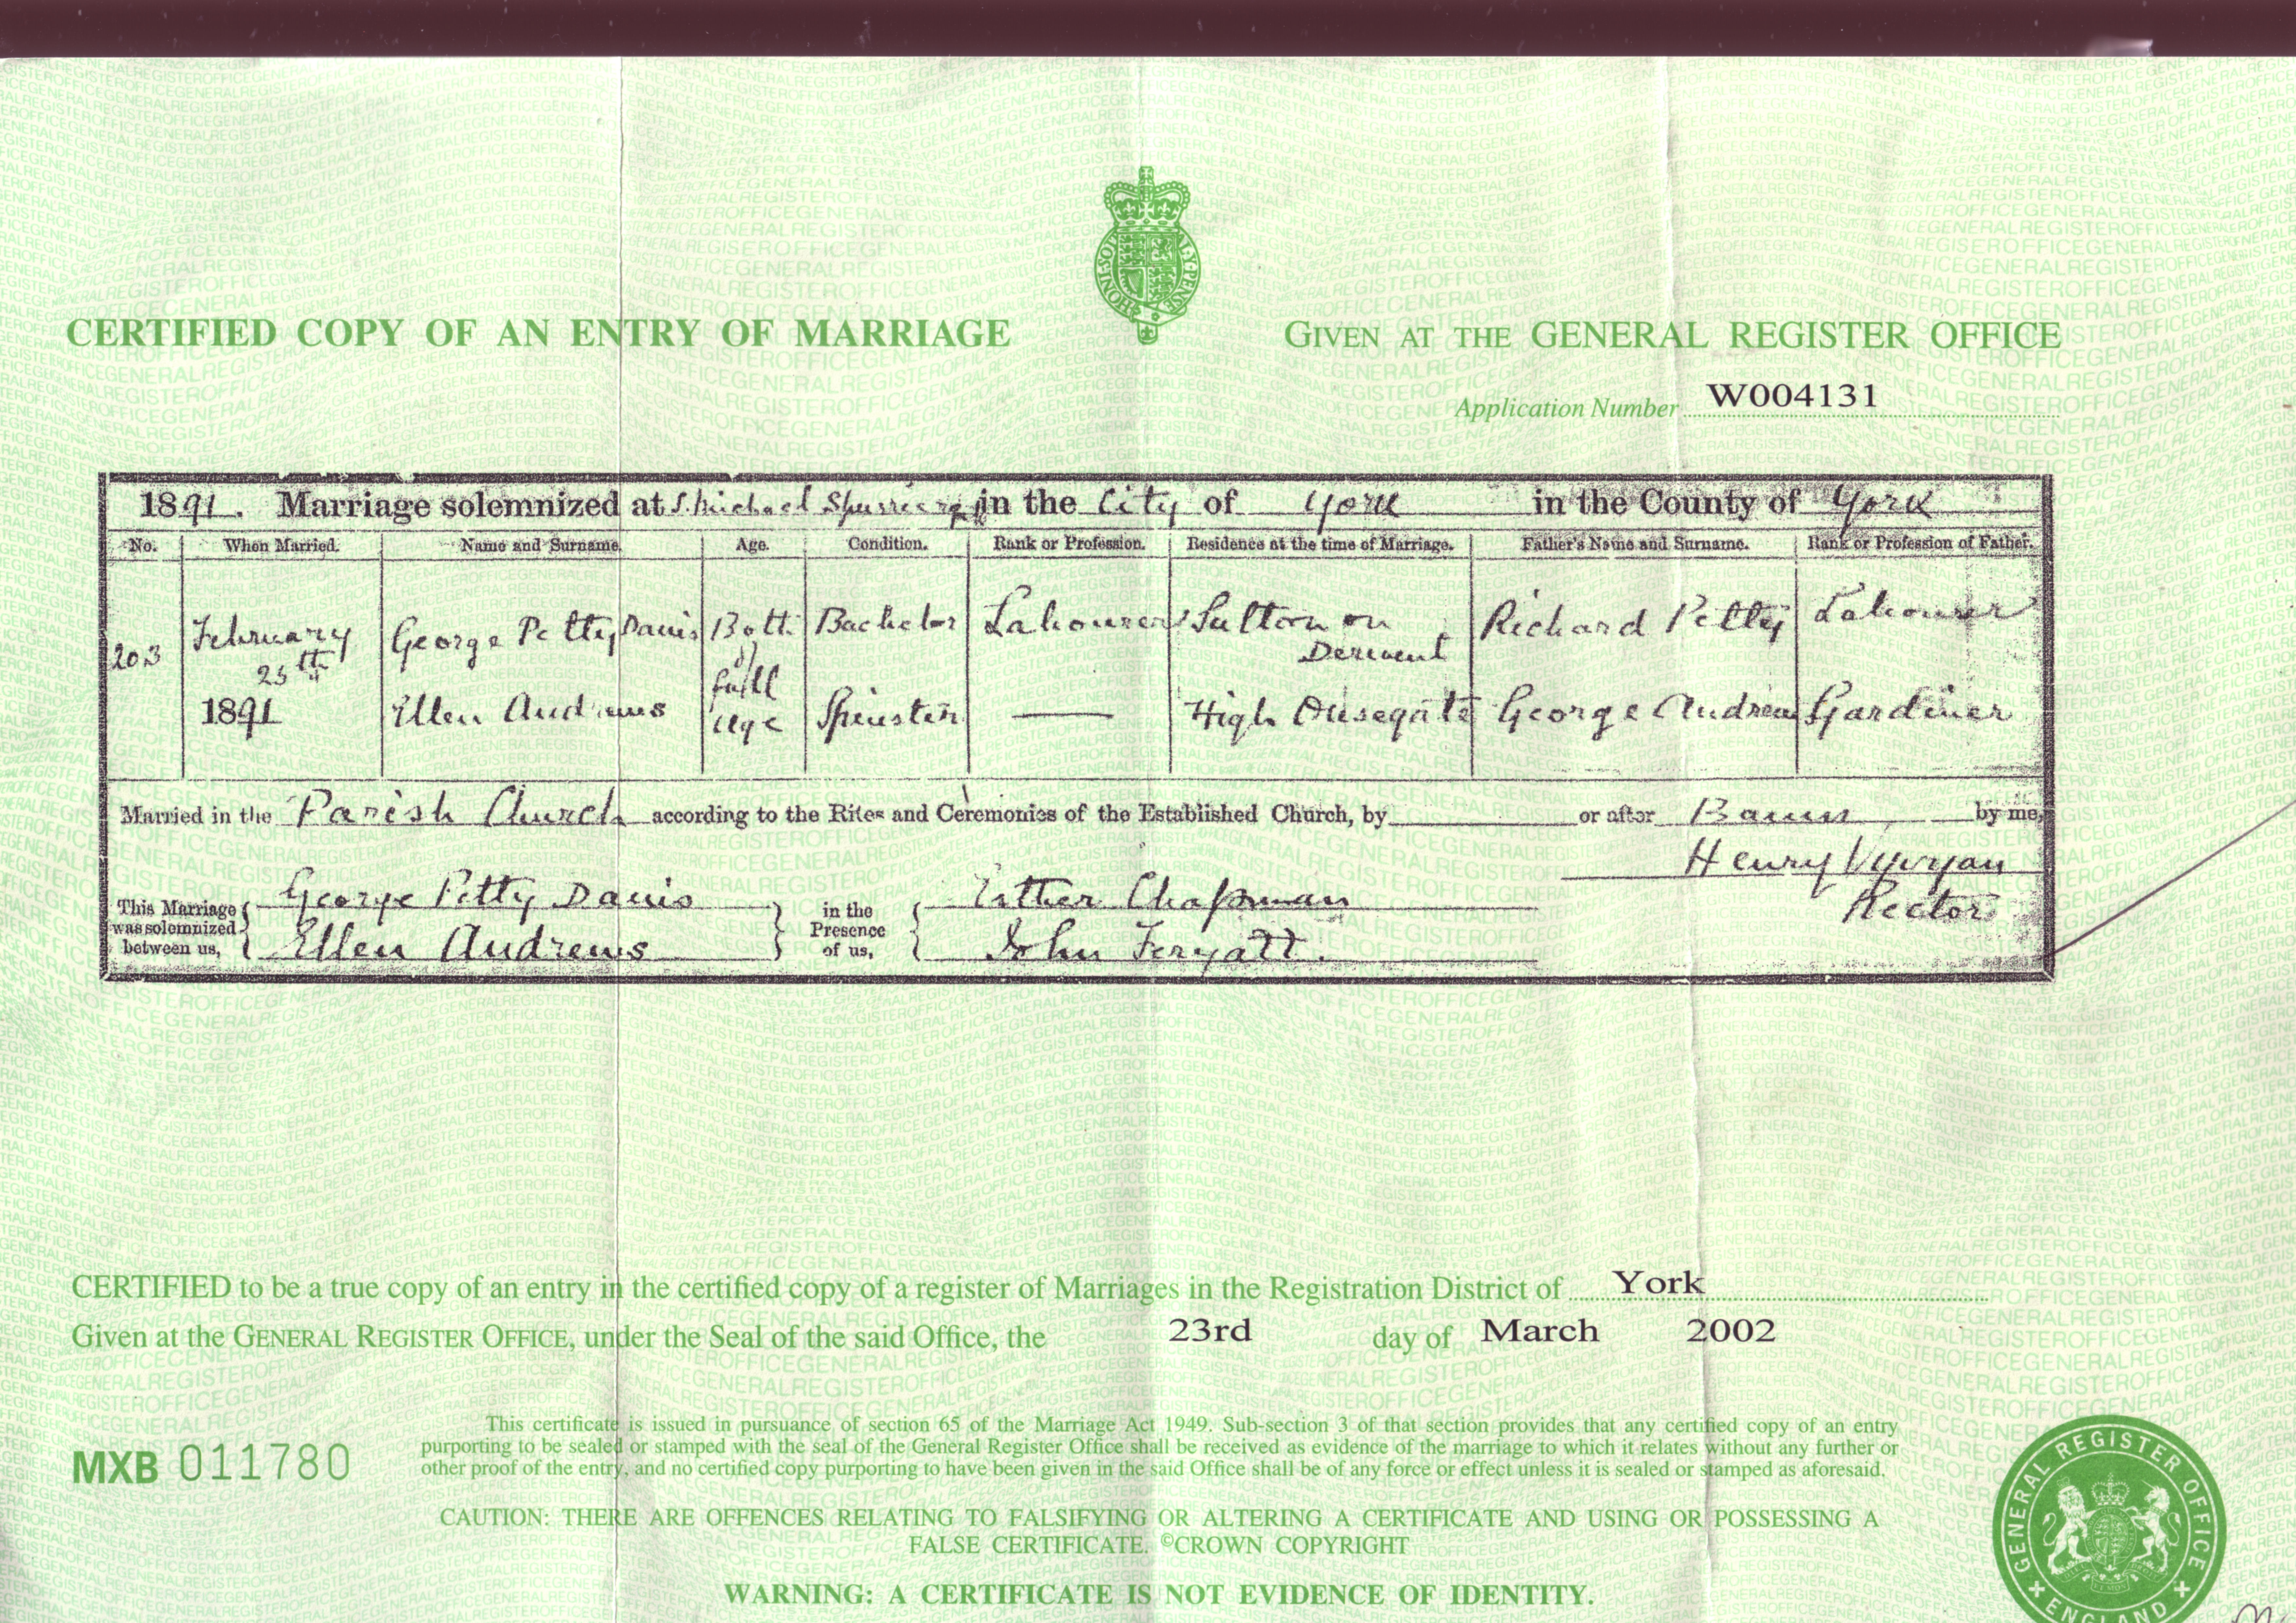 CERTIFIED COPY OF AN ENTRY OF MARRIAGE
GIVEN AT THE GENERAL REGISTER OFFICE
Application Number W004131
1891. Marriage solemnized at S. Michael in the City of York in the County of York
No. When Married. Name and Surname. Age. Condition. Rank or Profession. Residence at the time of Marriage. Father's Name and Surname. Rank or Profession of Father.
203 February 25th 1891 George Petty Davis Both of full age Bachelor Labourer Sutton on Derwent Richard Petty Labourer
Ellen Andrews Spinster — High Ousegate George Andrew Gardiner
Married in the Parish Church according to the Rites and Ceremonies of the Established Church, by or after Banns by me,
Henry Vyvyan
Rector
This Marriage was solemnized between us, George Petty Davis
Ellen Andrews
in the Presence of us, Esther Chapman
John
CERTIFIED to be a true copy of an entry in the certified copy of a register of Marriages in the Registration District of York
Given at the GENERAL REGISTER OFFICE, under the Seal of the said Office, the 23rd day of March 2002
This certificate is issued in pursuance of section 65 of the Marriage Act 1949. Sub-section 3 of that section provides that any certified copy of an entry
purporting to be sealed or stamped with the seal of the General Register Office shall be received as evidence of the marriage to which it relates without any further or
other proof of the entry, and no certified copy purporting to have been given in the said Office shall be of any force or effect unless it is sealed or stamped as aforesaid.
MXB 011780
CAUTION: THERE ARE OFFENCES RELATING TO FALSIFYING OR ALTERING A CERTIFICATE AND USING OR POSSESSING A
FALSE CERTIFICATE. ©CROWN COPYRIGHT
WARNING: A CERTIFICATE IS NOT EVIDENCE OF IDENTITY.
GENERAL REGISTER OFFICE
ENGLAND